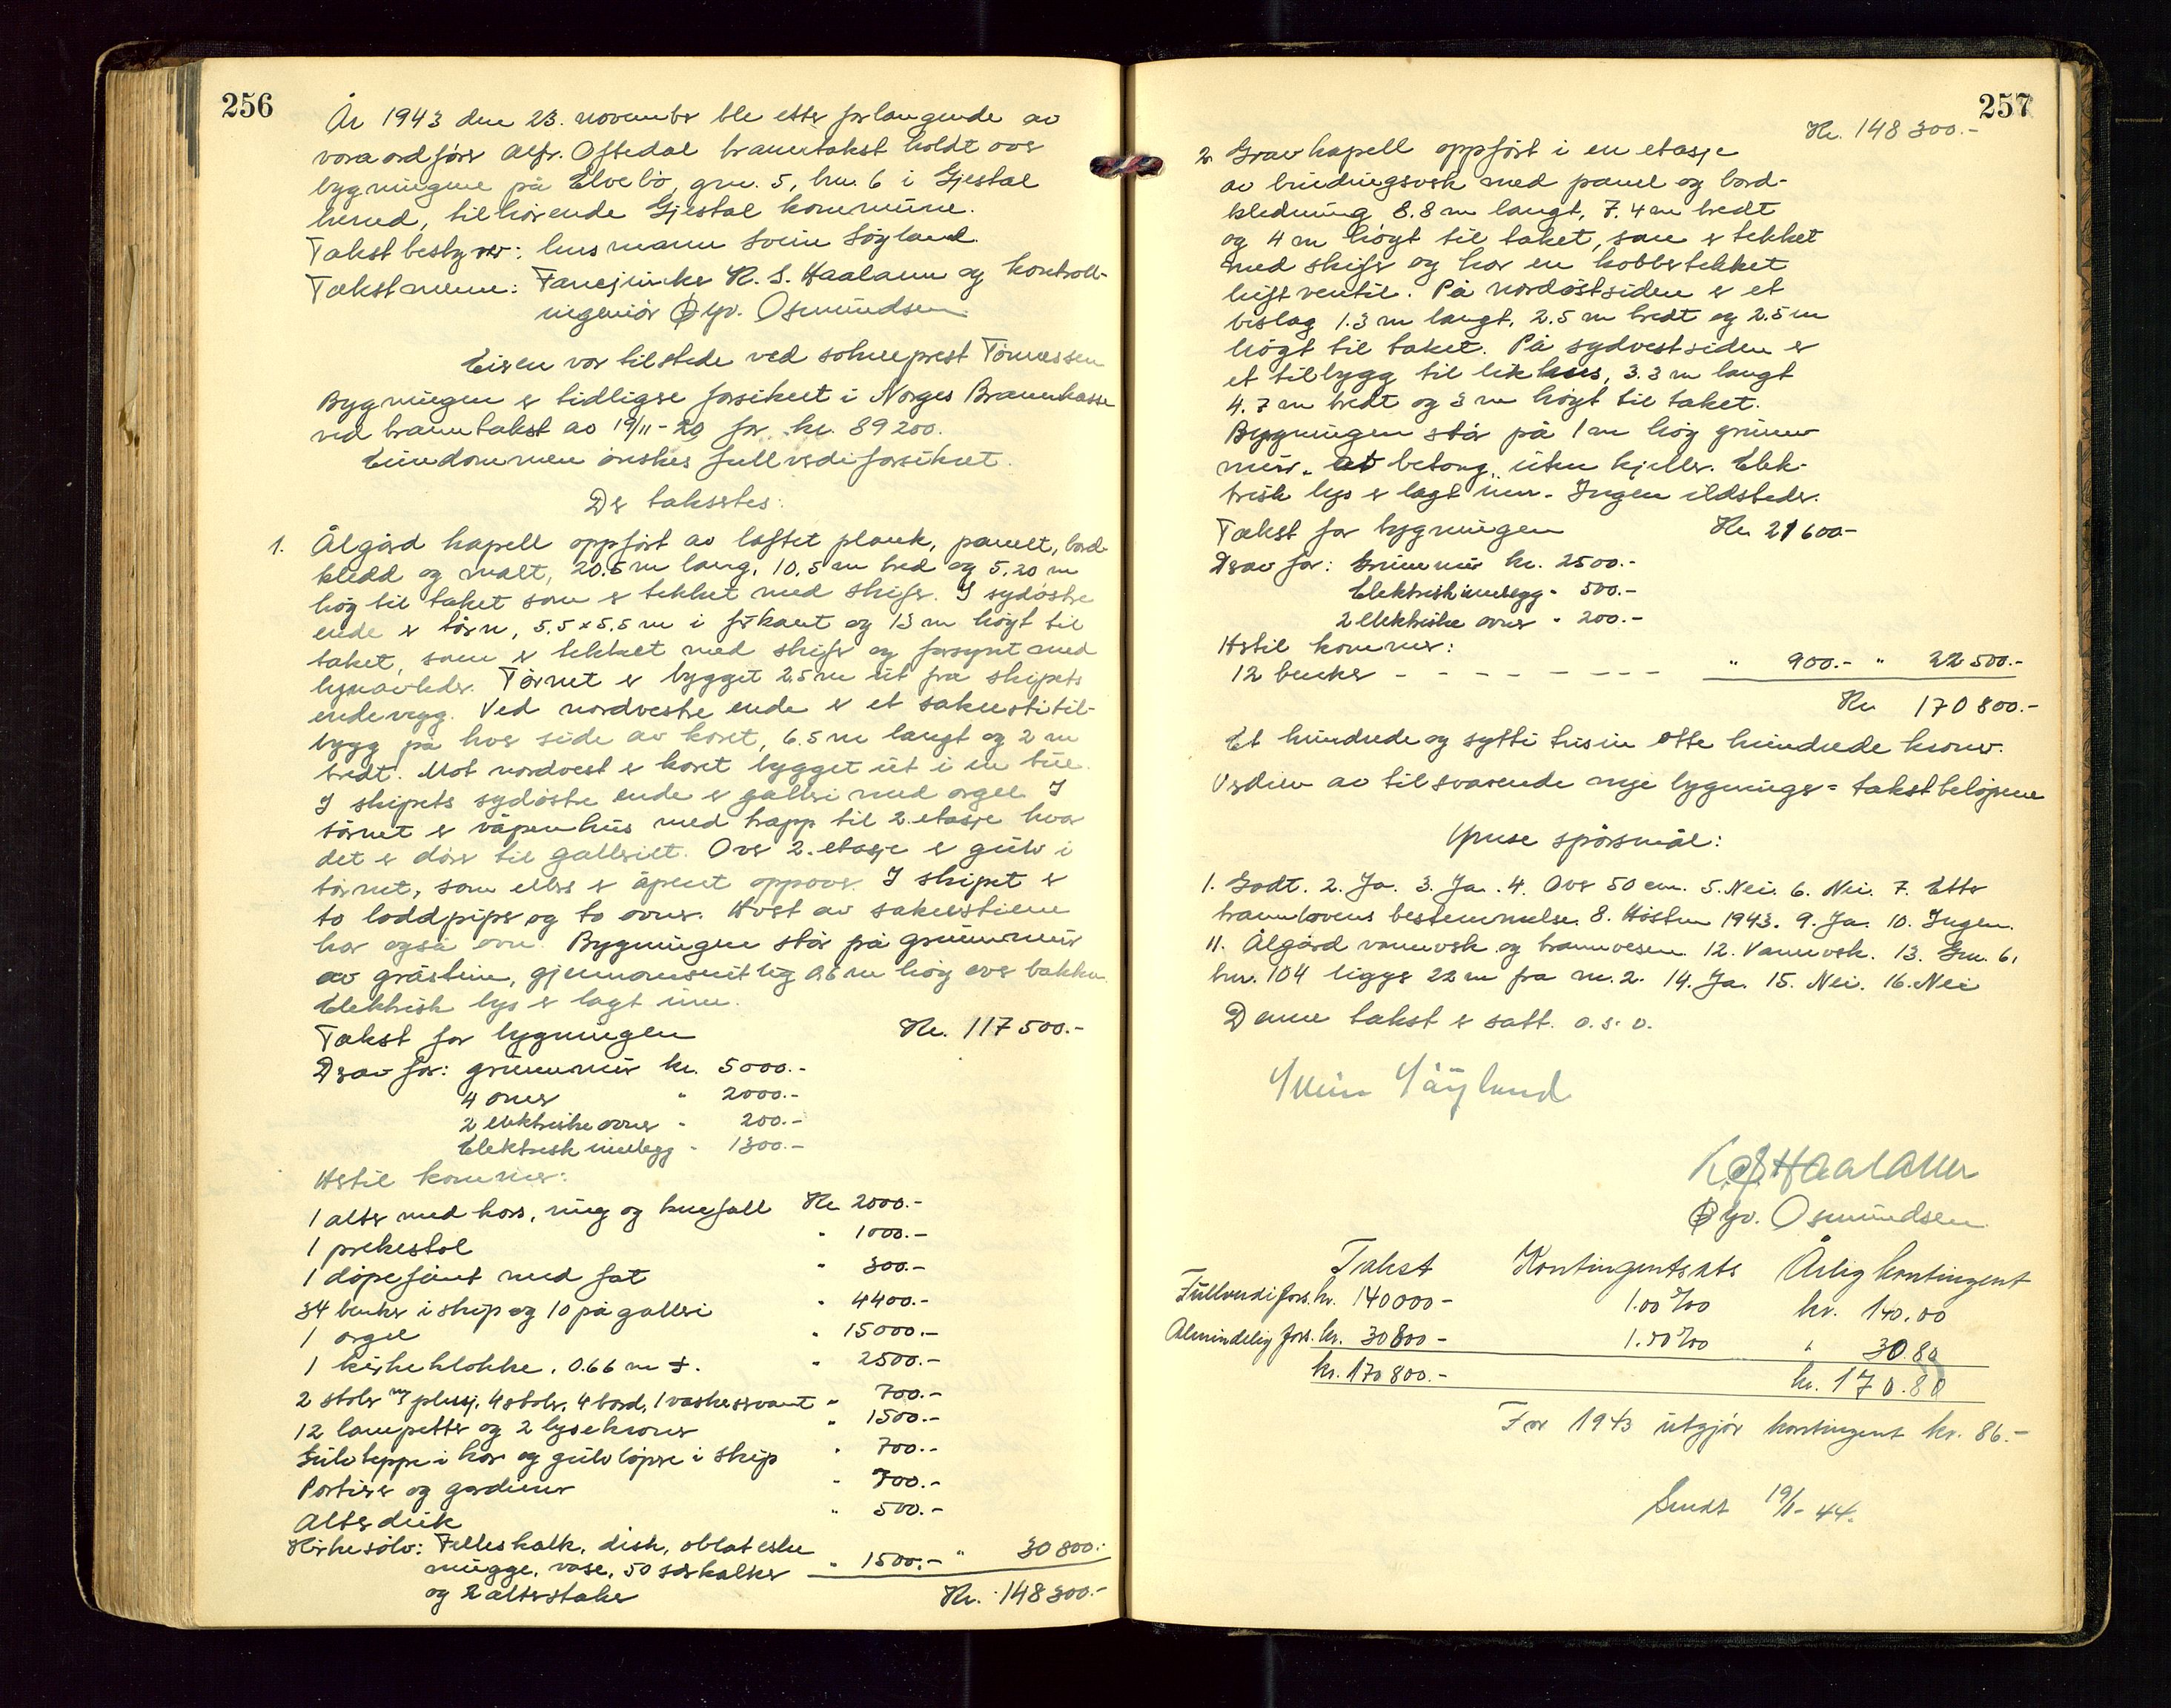 256
År 1943 den 23. november ble etter forlangende av
varaordfører Alfr. Oftedal branntakst holdt over
bygningene på Elvebø, gnr. 5, bnr. 6 i Gjestal
herred, tilhørende Gjestal kommune.
Takstbestyrer: husmann Svein Søyland.
Takstmenn: Fanejunker K. S. Haaland og kontroll-
ingeniør Øyv. Osmundsen.
Eieren var tilstede ved sokneprest Tønnessen
Bygningen er tidligere forsikret i Norges Brannkasse
ved branntakst av 19/11-20 for kr. 89200.
Eiendommen ønskes fullverdiforsikret.
Der takseres:
1. Ålgård kapell oppført av laftet plank, panelt, bord-
kledd og malt, 20.5 m lang, 10.5 m bred og 5.20 m
høg til taket som er tekket med skifer. I sydøstre
ende er tårn, 5.5 x 5.5 m i firkant og 13 m høgt til
taket, som er tekket med skifer og forsynt med
lynavleder. Tårnet er bygget 2.5 m ut fra skipets
endevegg. Ved nordvestre ende er et sakristitil-
bygg på hver side av koret, 6.5 m langt og 2 m
bredt. Mot nordvest er koret bygget ut i en bue.
I skipets sydøstre ende er galleri med orgel. I
tårnet er våpenhus med trapp til 2. etasje hvor
det er dører til galleriet. Over 2. etasje er gulv i
tårnet, som ellers er åpent oppover. I skipet er
to loddpiper og to ovner. Hvert av sakristiene
har også ovn. Bygningen står på grunnmur
av gråstein, gjennomsnittlig 0.6 m høg over bakken.
Elektrisk lys er lagt inn.
Takst for bygningen Kr. 117500.-
Derav for: grunnmur kr. 5000.-
4 ovner " 2000.-
2 elektriske ovner " 200.-
Elektrisk innlegg " 1300.-
Hertil kommer:
1 alter med kors, ring og knefall Kr 2000.-
1 prekestol " 1000.-
1 døpefont med fat " 300.-
34 benker i skip og 10 på galleri " 4400.-
1 orgel " 15000.-
1 kirkeklokke, 0.66 m d. " 2500.-
2 stoler m/ plusj, 4 stoler, 4 bord, 1 vaskeservant " 700.-
12 lampetter og 2 lysekroner " 1500.-
Gulvteppe i kor og gulvløpere i skip " 700.-
Portierer og gardiner " 700.-
Alterduk " 500.-
Kirkesølv: Felleskalk, disk, oblateske
mugge, vase, 50 særkalker " 1500.- " 30800.-
og 2 alterstaker Kr. 148300.-
257
Kr. 148300.-
2. Gravkapell oppført i en etasje
av bindingsverk med panel og bord-
kledning 8.8 m langt, 7.4 m bredt
og 4 m høgt til taket, som er tekket
med skifer og har en kobbertekket
luftventil. På nordøstsiden er et
bislag 1.3 m langt, 2.5 m bredt og 2.5 m
høgt til taket. På sydvestsiden er
et tilbygg til likhus, 3.3 m langt
4.7 m bredt og 3 m høgt til taket.
Bygningen står på 1 m høg grunn-
mur av betong uten kjeller. Elek-
trisk lys er lagt inn. Ingen ildsteder.
Takst for bygningen Kr. 21600.-
Derav for: Grunnmur kr. 2500.-
Elektrisk innlegg " 500.-
2 elektriske ovner " 200.-
Hertil kommer:
12 benker - - - - - - - " 900.- " 22500.-
Kr 170800.-
Et hundrede og sytti tusen otte hundrede kroner.
Verdien av tilsvarende nye bygninger = takstbeløpene
Ymse spørsmål:
1. Godt. 2. Ja. 3. Ja. 4. Over 50 cm. 5. Nei. 6. Nei. 7. Etter
brannlovens bestemmelser. 8. Høsten 1943. 9. Ja. 10. Ingen.
11. Ålgård vannverk og brannvesen. 12. Vannverk. 13. Gnr. 6,
bnr. 104 ligger 22 m fra nr. 2. 14. Ja. 15. Nei. 16. Nei
Denne takst er satt. o. s. v.
Svein Søyland
K. S. Haaland
Øyv. Osmundsen
Takst Kontingentsats Årlig kontingent
Fullverdifors. kr. 140000- 1.00 ‰ kr. 140.00
Almindelig fors. kr. 30800- 1.00 ‰ " 30.80
kr. 170800.- kr. 170.80
For 1943 utgjør kontingent kr. 86.-
Sendt 19/1-44.